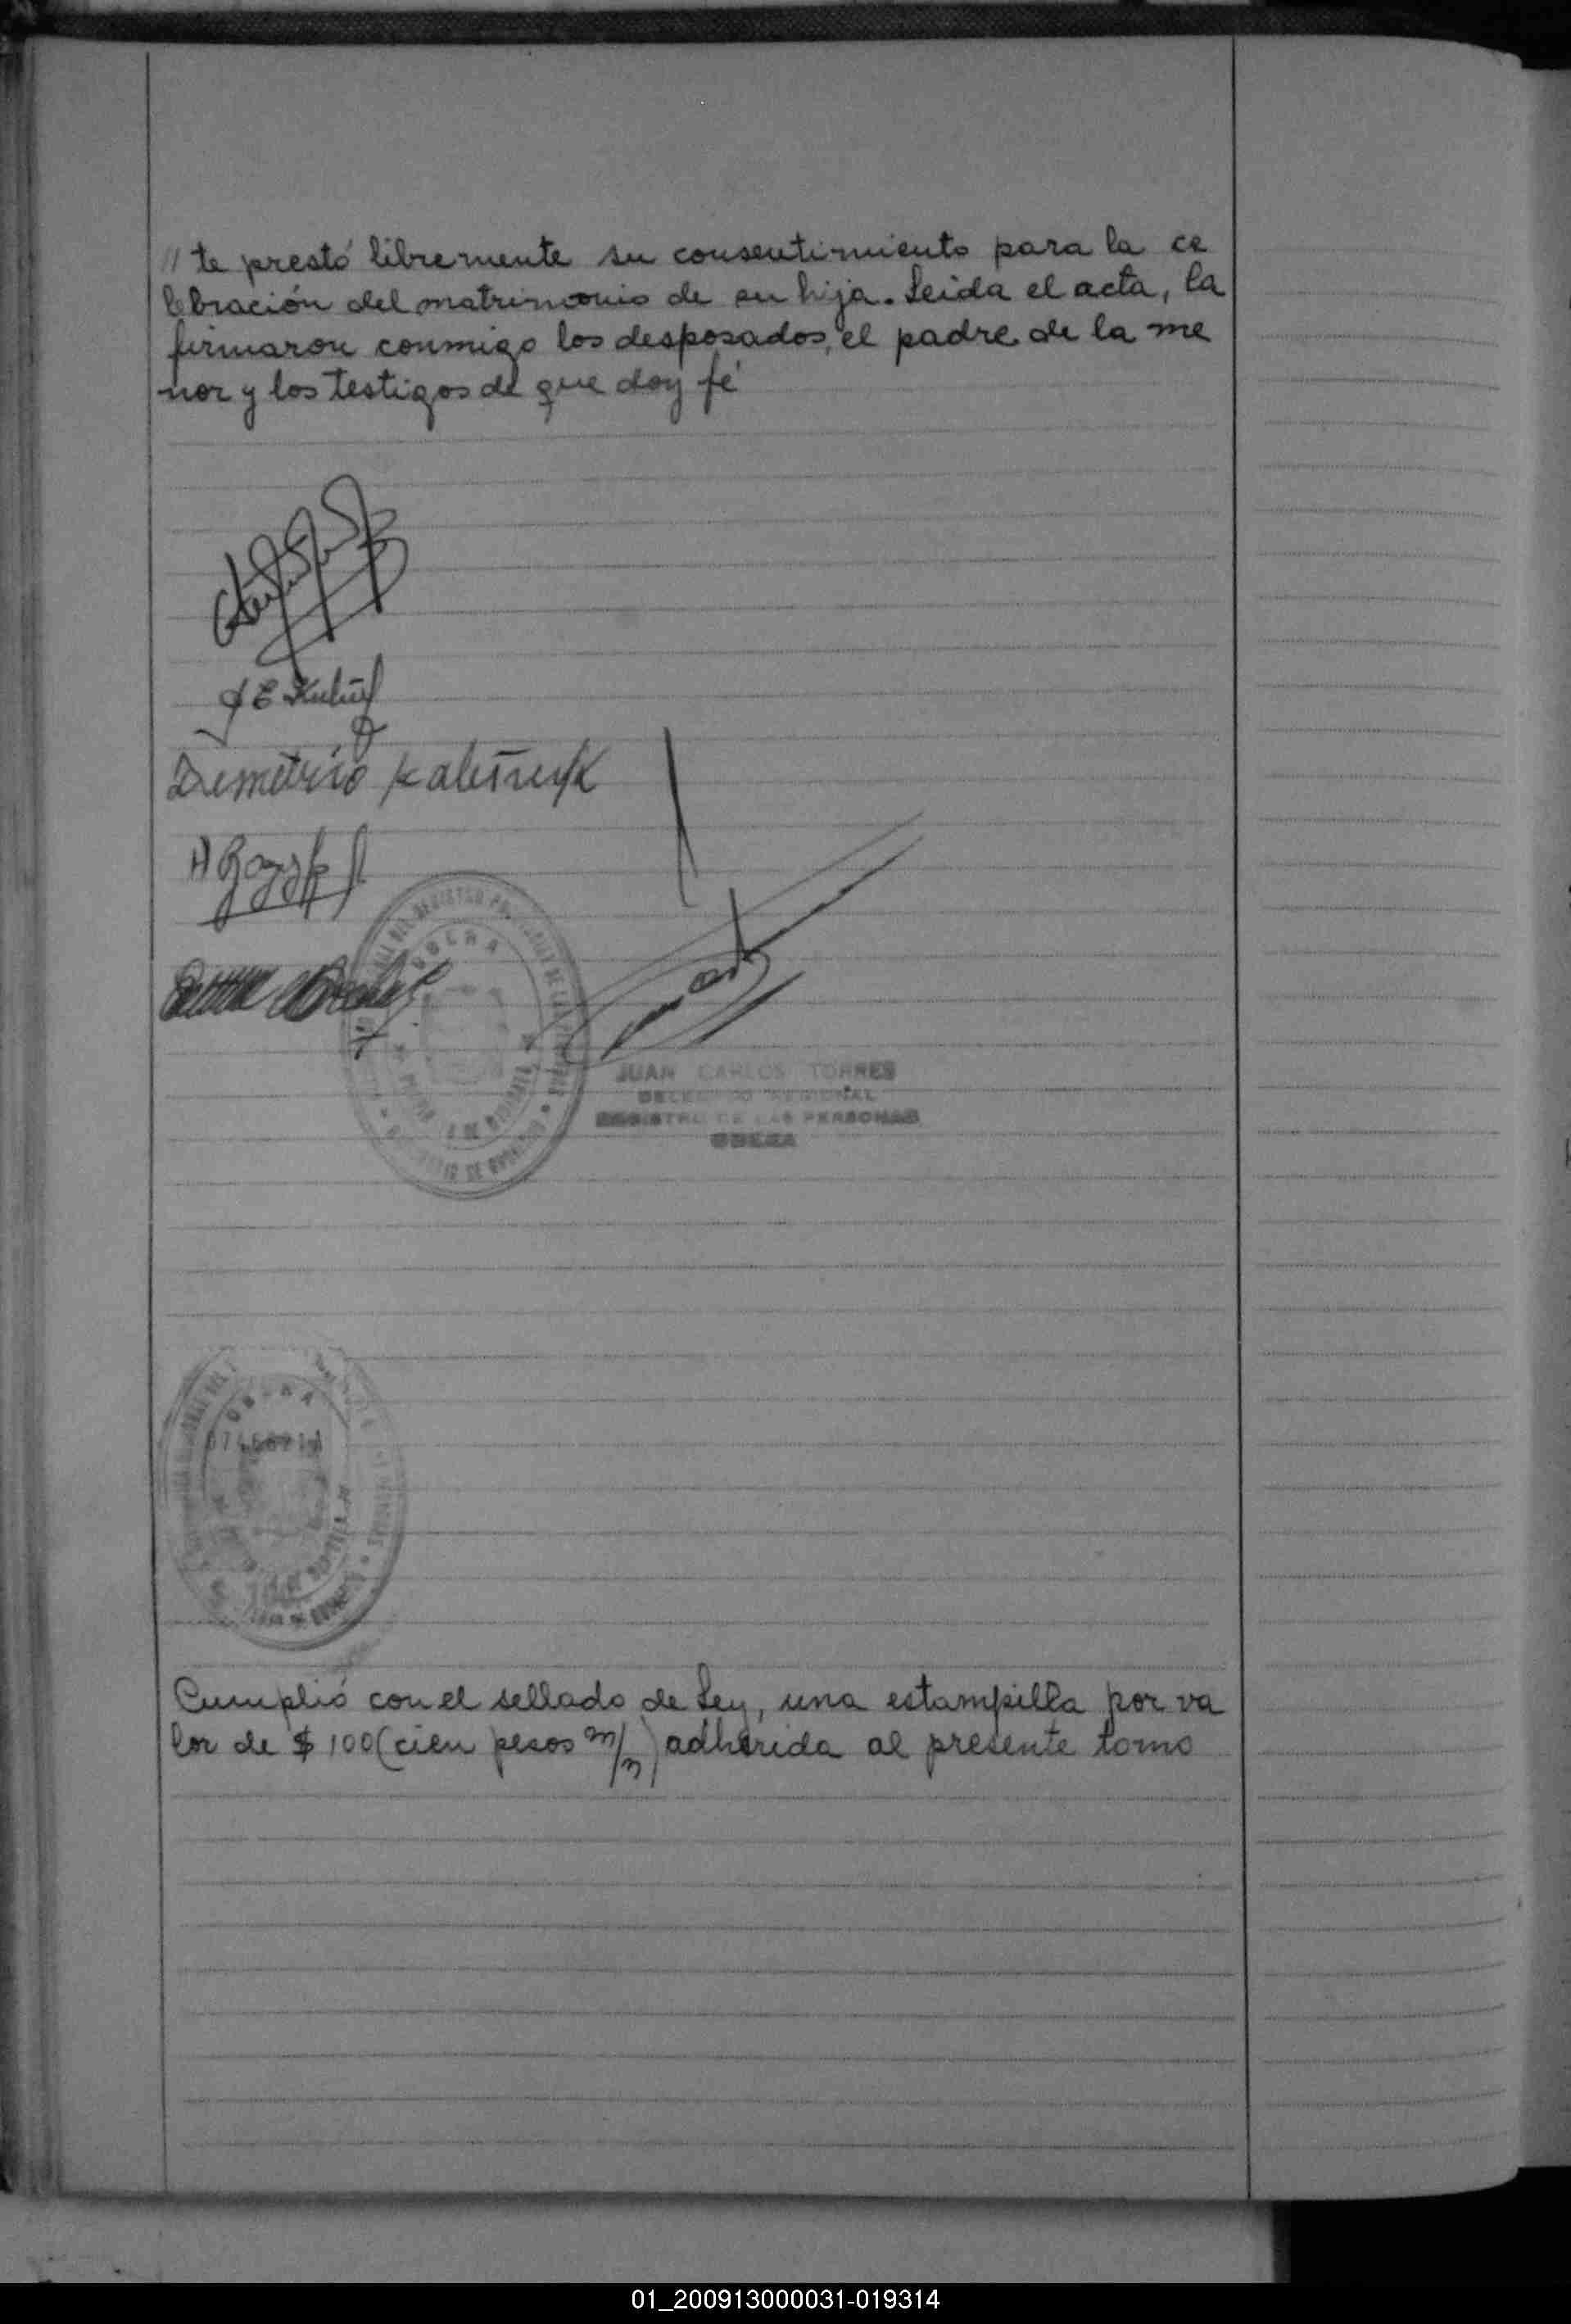 // te prestó libremente su consentimiento para la ce
lebración del matrimonio de su hija. Leida el acta, la
firmaron conmigo los desposados, el padre de la me
nor y los testigos de que doy fé
Demetrio Kaliñuk
OBERA
JUAN CARLOS TORRES
DELEGADO REGIONAL
REGISTRO DE LAS PERSONAS
OBERA
OBERA
Cumplió con el sellado de Ley, una estampilla por va
lor de $ 100 (cien pesos m/n) adherida al presente tomo
01_200913000031-019314